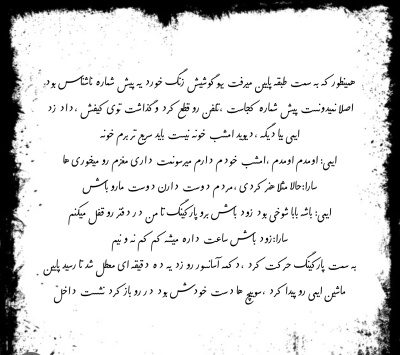 همینطور که به سمت طبقه پایین میرفت یهو گوشیش زنگ خورد یه پیش شماره ناشناس بود
اصلا نمیدونست پیش شماره کجاست ، تلفن رو قطع کرد و گذاشت توی کیفش ، داد زد
ایی بیا دیگه ، دیوید امشب خونه نیست باید سریع تر برم خونه
ایی: اومدم اومدم ، امشب خودم دارم میرسونمت داری مغزم رو میخوری ها
سارا: حالا مثلا هنر کردی ، مردم دوست دارن دوست مارو باش
ایی: باشه بابا شوخی بود زود باش برو پارکینگ تا من در دفتر رو قفل میکنم
سارا: زود باش ساعت داره میشه کم کم نه و نیم
به سمت پارکینگ حرکت کرد ، دکمه آسانسور رو زد یه ده دقیقه ای معطل شد تا رسید پایین
ماشین ایی رو پیدا کرد ، سوییچ ها دست خودش بود در رو باز کرد نشست داخل